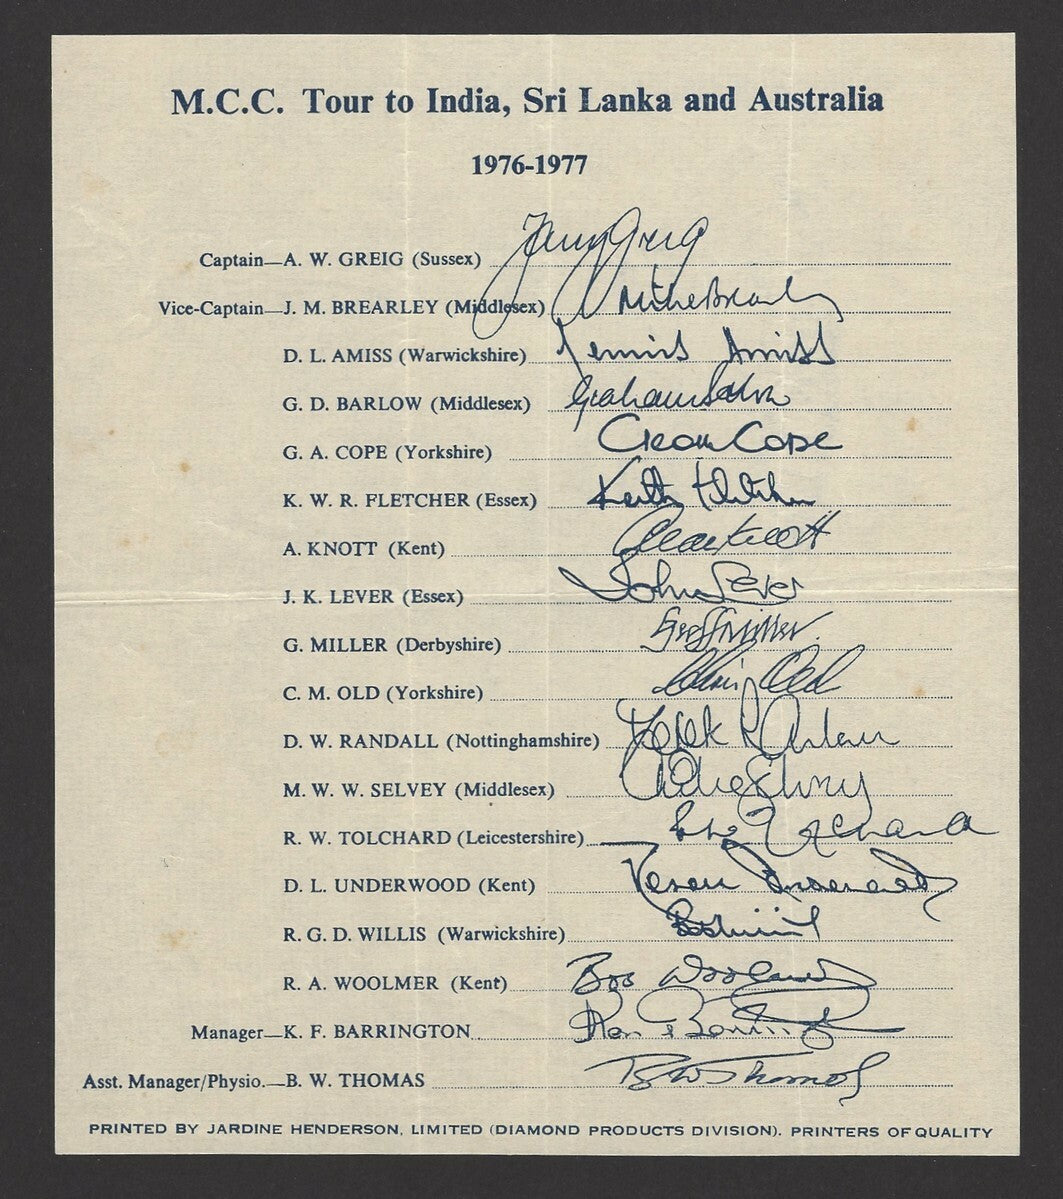 M.C.C. Tour to India, Sri Lanka and Australia
1976-1977
Captain—A. W. GREIG (Sussex) Tony Greig
Vice-Captain—J. M. BREARLEY (Middlesex) Mike Brearley
D. L. AMISS (Warwickshire) Dennis Amiss
G. D. BARLOW (Middlesex) Graham Barlow
G. A. COPE (Yorkshire) Geoff Cope
K. W. R. FLETCHER (Essex) Keith Fletcher
A. KNOTT (Kent) Alan Knott
J. K. LEVER (Essex) John Lever
G. MILLER (Derbyshire) Geoff Miller
C. M. OLD (Yorkshire) Chris Old
D. W. RANDALL (Nottinghamshire) Derek Randall
M. W. W. SELVEY (Middlesex) Mike Selvey
R. W. TOLCHARD (Leicestershire) Tolchard
D. L. UNDERWOOD (Kent) Derek Underwood
R. G. D. WILLIS (Warwickshire) Bob Willis
R. A. WOOLMER (Kent) Bob Woolmer
Manager—K. F. BARRINGTON Ken Barrington
Asst. Manager/Physio.—B. W. THOMAS B W Thomas
PRINTED BY JARDINE HENDERSON, LIMITED (DIAMOND PRODUCTS DIVISION). PRINTERS OF QUALITY